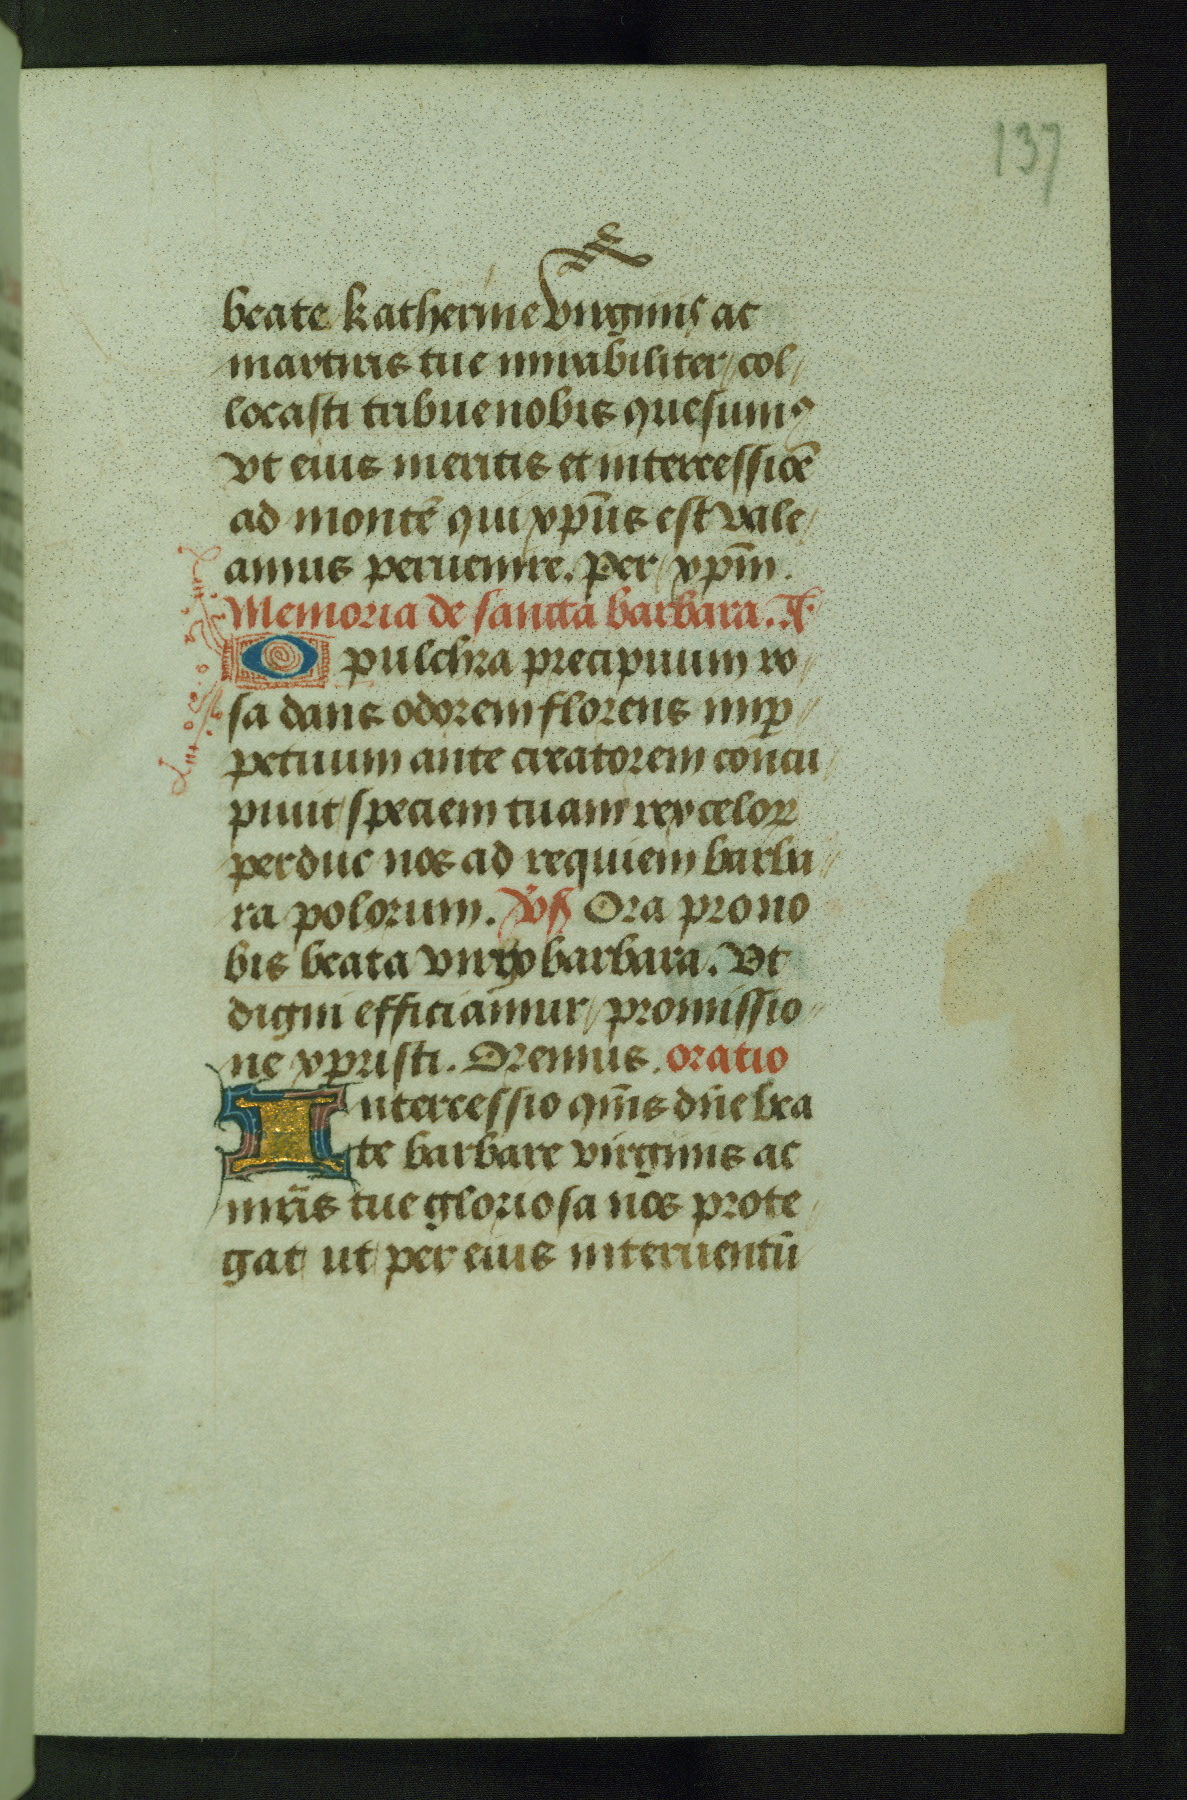 137
beate katherine virginis ac
martiris tue mirabiliter col
locasti tribue nobis quesumꝰ
vt eius meritis et intercessiōe
ad montē qui xp̄us est vale
amus peruenire. Per xp̄m.
Memoria de sancta barbara. A͞.
O pulchra precipuum ro
sa dans odorem florens imp̲
petuum ante creatorem concu
piuit speciem tuam rex celoꝝ
perduc nos ad requiem barba
ra polorum. v̄s Ora pro no
bis beata virgo barbara. Vt
digni efficiamur promissio
ne xpristi. Oremus. oratio
Intercessio qm̄s dn̄e bea
te barbare virginis ac
mr̄is tue gloriosa nos prote
gat ut per eius interuentū